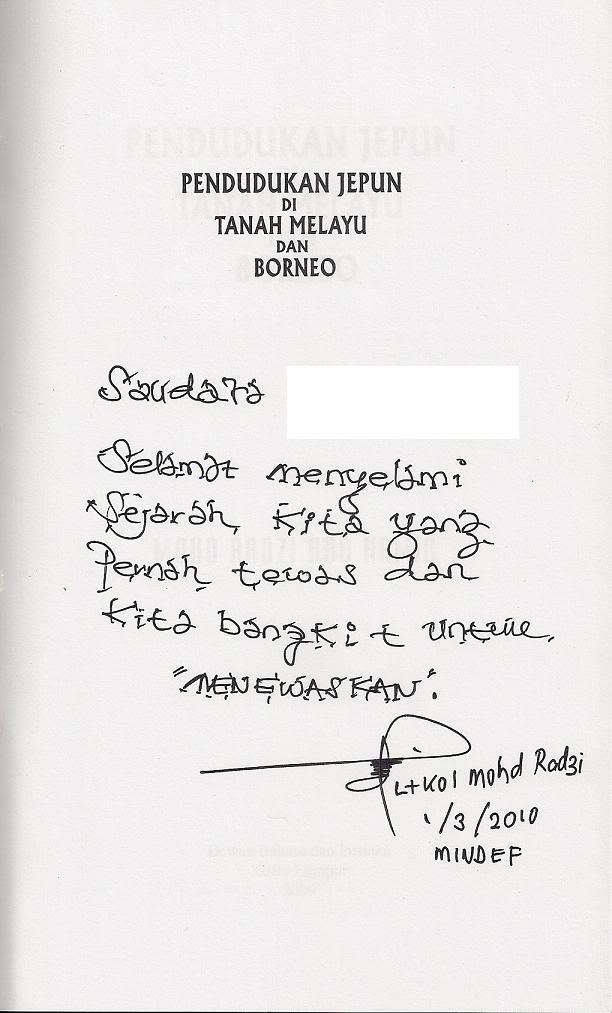 PENDUDUKAN JEPUN
DI
TANAH MELAYU
DAN
BORNEO
Saudara
Selamat menyelami
Sejarah kita yang
Pernah tewas dan
Kita bangkit untuk
"MENEWASKAN".
Lt Kol Mohd Radzi
1/3/2010
MINDEF